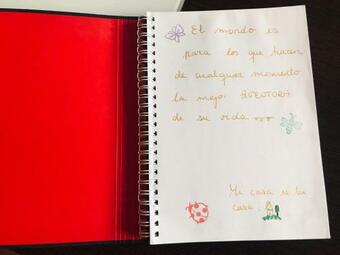 El mundo es
para los que hacen
de cualquier momento
la mejor AVENTURA
de su vida ...
Mi casa es tu
casa.